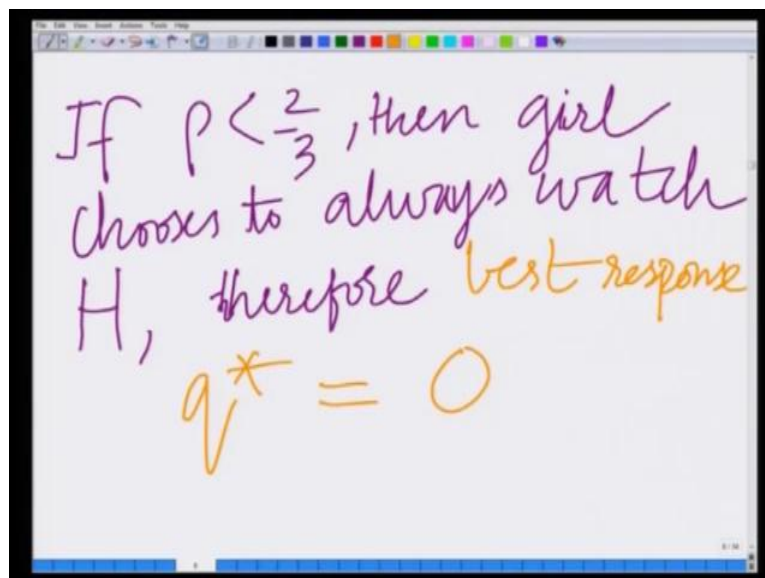 File Edit View Insert Actions Tools Help
If p < 2/3, then girl
chooses to always watch
H, therefore best response
q* = 0